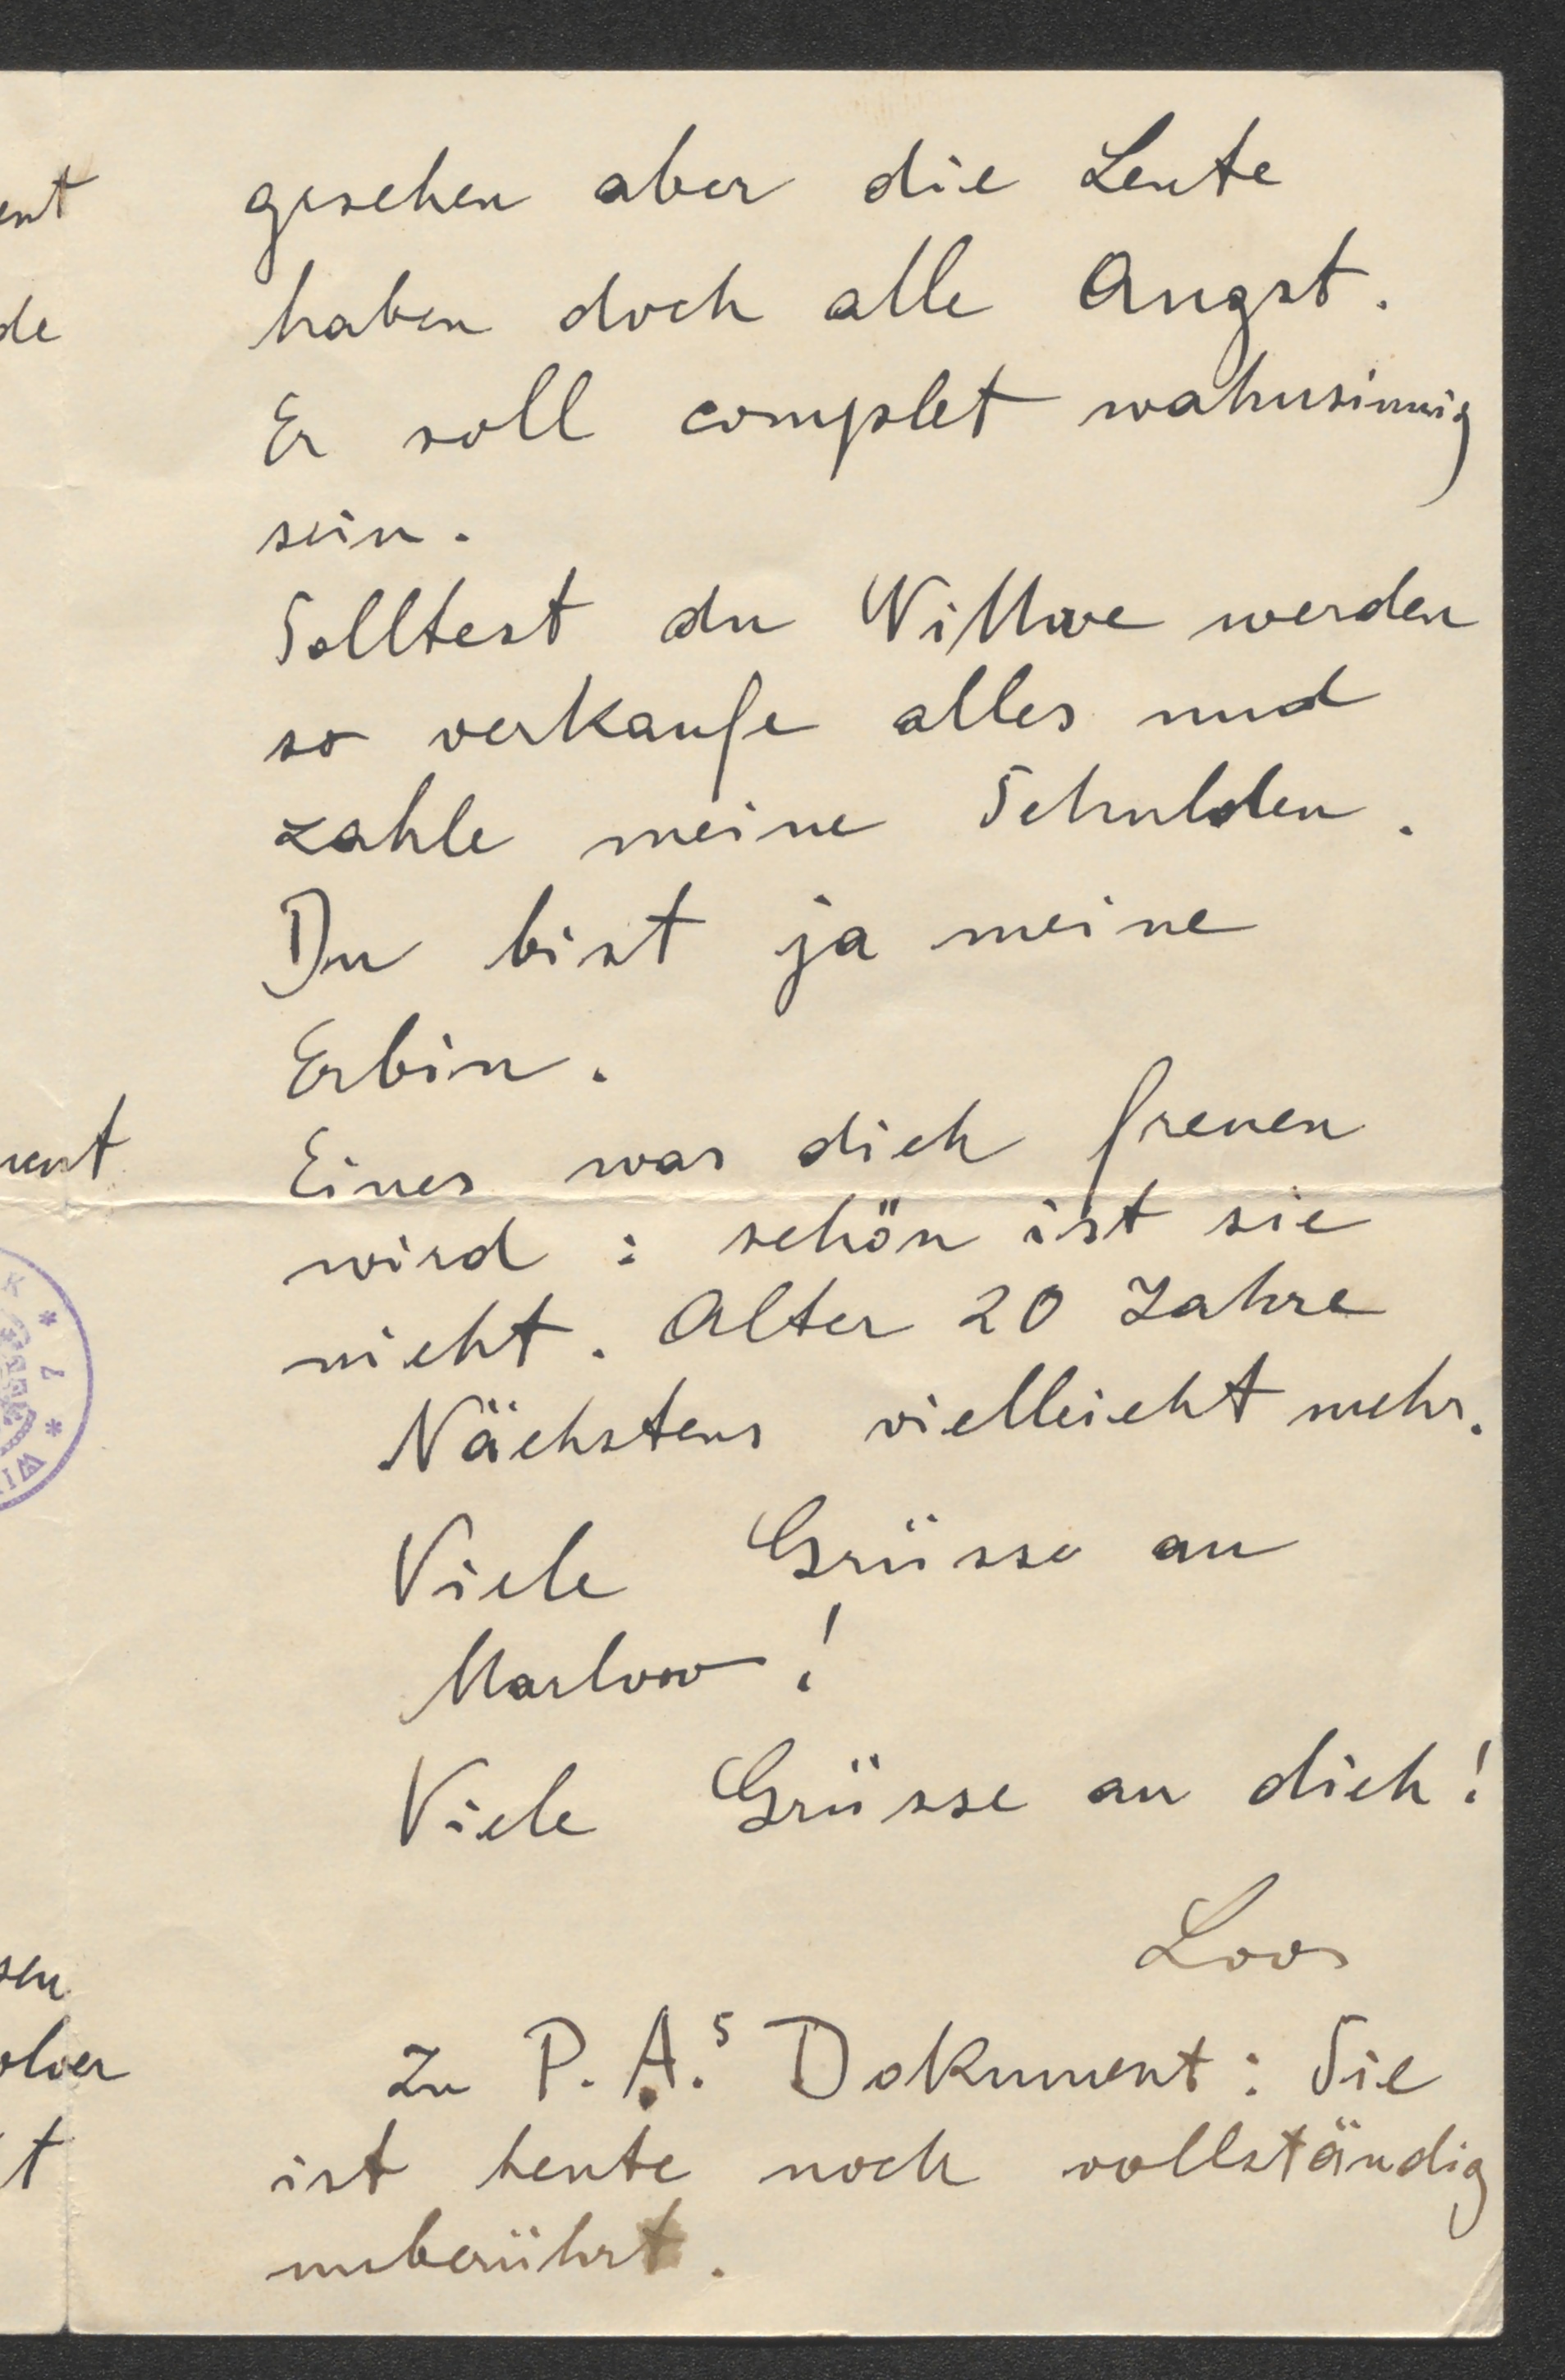 gesehen aber die Leute
haben doch alle Angst.
Er soll complet wahnsinnig
sein.
Solltest du Wittwe werden
so verkaufe alles und
zahle meine Schulden.
Du bist ja meine
Erbin.
Eines was dich freuen
wird : schön ist sie
nicht. Alter 20 Jahre
Nächstens vielleicht mehr.
Viele Grüsse an
Marlow!
Viele Grüsse an dich!
Loos
Zu P. A.s Dokument: Sie
ist heute noch vollständig
unberührt.